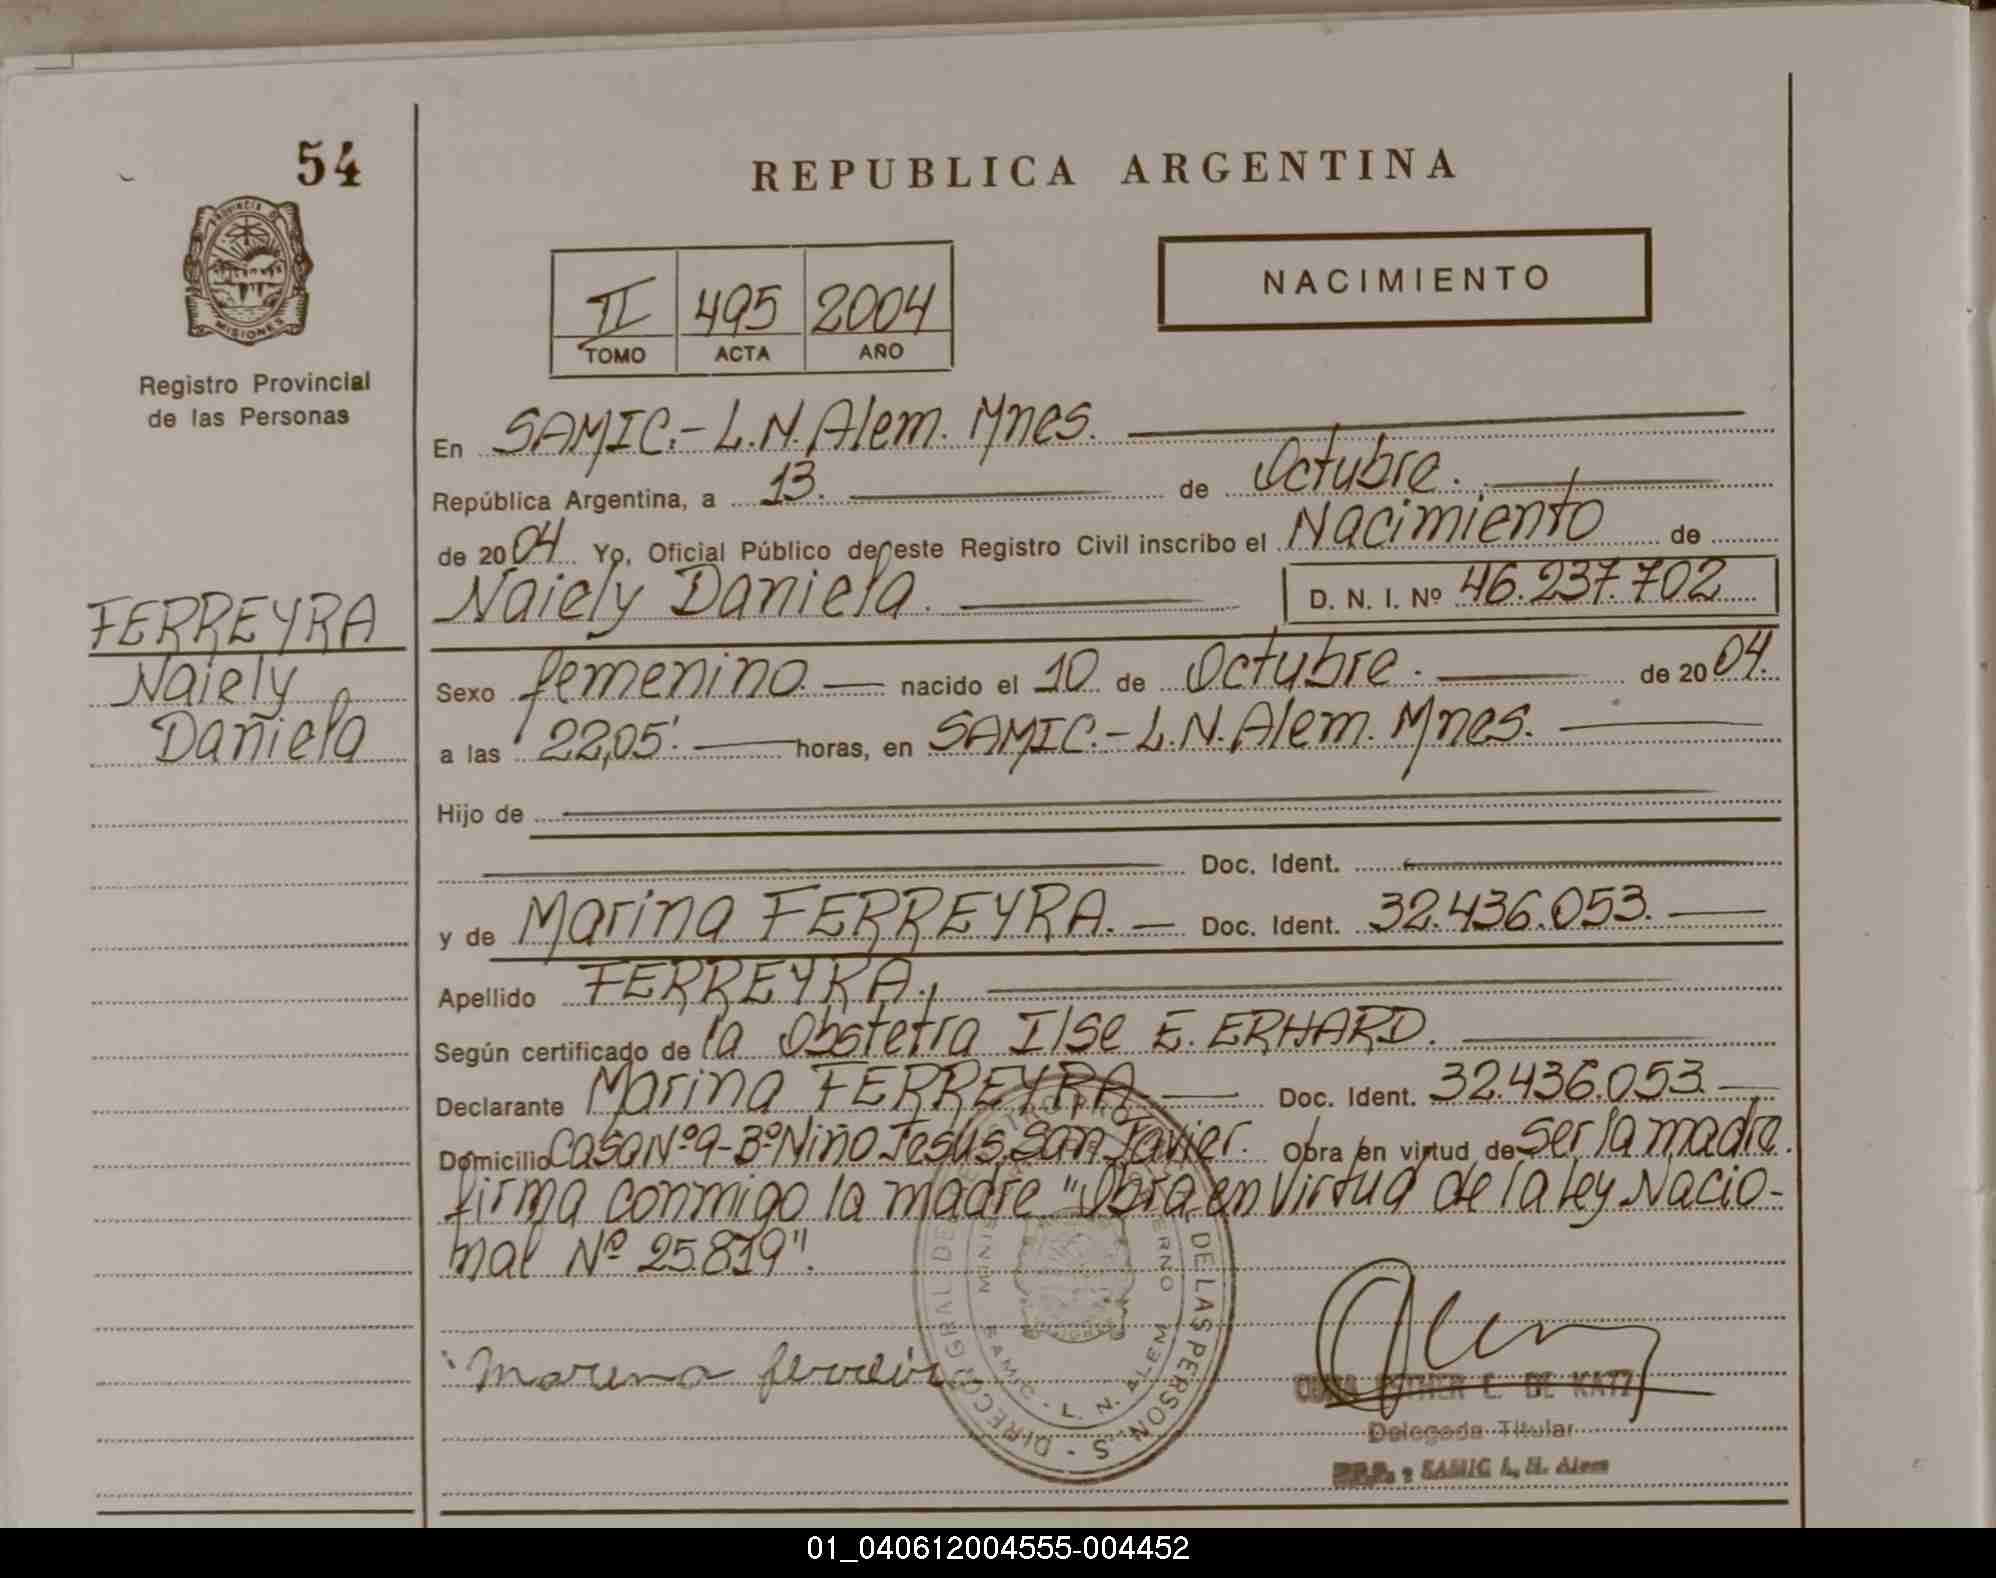 54
PROVINCIA DE
MISIONES
Registro Provincial
de las Personas
FERREYRA
Naiely
Daniela
REPUBLICA ARGENTINA
II 495 2004
TOMO ACTA AÑO
NACIMIENTO
En SAMIC.- L.N. Alem. Mnes.
República Argentina, a 13. de Octubre.
de 2004. Yo, Oficial Público de este Registro Civil inscribo el Nacimiento de
Naiely Daniela. D. N. I. Nº 46.237.702
Sexo femenino. nacido el 10 de Octubre. de 2004.
a las 22,05'. horas, en SAMIC.- L.N. Alem. Mnes.
Hijo de
Doc. Ident.
y de Marina FERREYRA. Doc. Ident. 32.436.053.
Apellido FERREYRA.,
Según certificado de la Obstetra Ilse E. ERHARD.
Declarante Marina FERREYRA Doc. Ident. 32.436.053.
Domicilio Casa Nº 9 - Bº Niño Jesús, San Javier. Obra en virtud de ser la madre.
firma conmigo la madre "Obra en Virtud de la ley Nacio-
nal Nº 25.819".
DE LAS PERSONAS
SAMIC - L. N. ALEM
ESTHER E. DE KATZ
Delegada Titular
SAMIC L. N. Alem
01_040612004555-004452